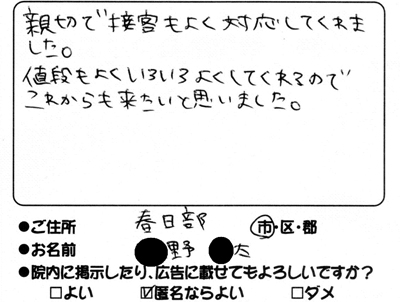 親切で接客もよく対応してくれま
した。
値段もよくいろいろよくしてくれるので
これからも来たいと思いました。
●ご住所 春日部 市・区・郡
●お名前 ●野 ●太
●院内に掲示したり、広告に載せてもよろしいですか?
□よい ☑匿名ならよい □ダメ